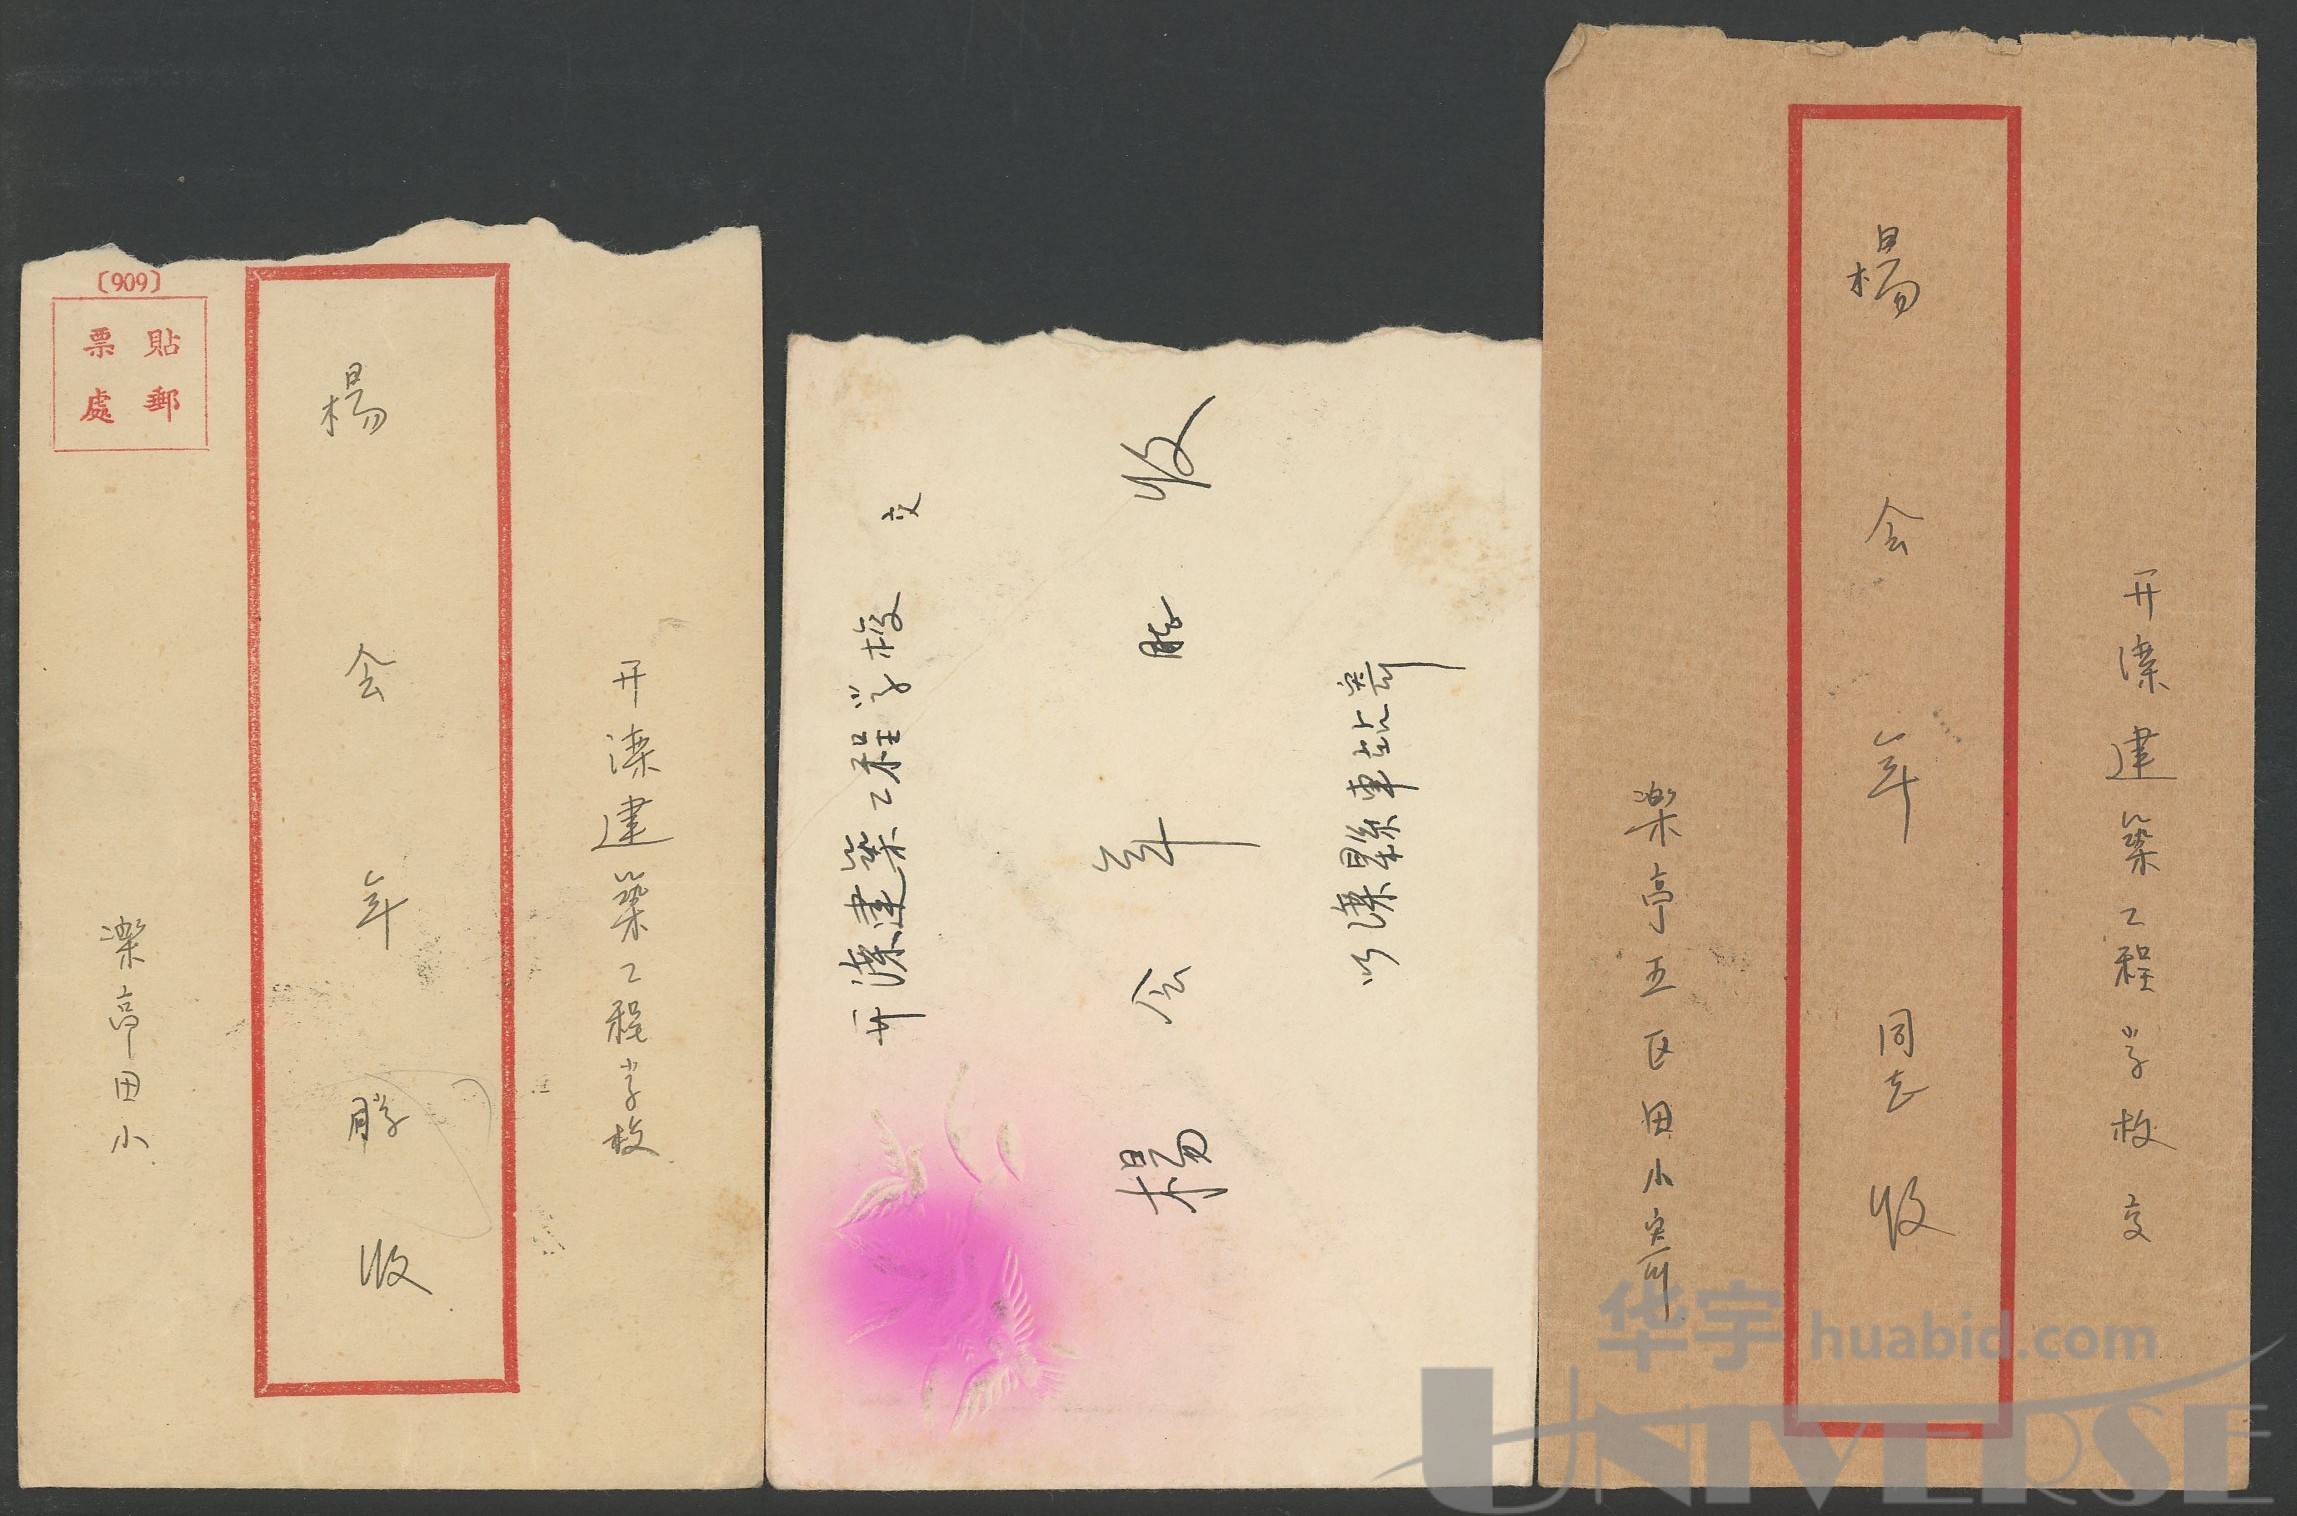 〔909〕
貼郵
票處
开滦建築工程学校
楊会年勝收
滦亭田小
开滦建築工程学校 交
楊会年 收
滦縣車站寄
开滦建築工程学校 交
楊会年同志收
乐亭五区田小寄
华宇 huabid.com
UNIVERSE